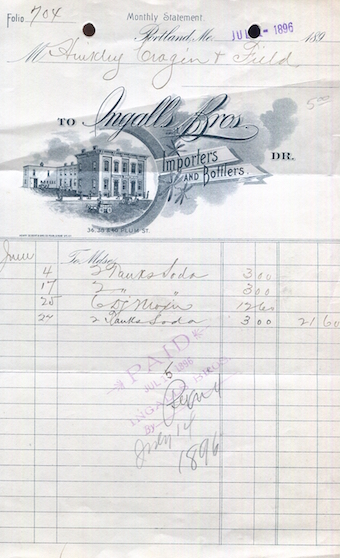 Folio 704
Monthly Statement.
Portland, Me. JUL 1 - 1896 189
M Hinkley Cragin & Field
5.00
TO Ingalls Bros. DR.
Importers
AND Bottlers.
36, 38 & 40 PLUM ST.
June To Mdse
4 2 Tanks Soda 3 00
17 2 " " 3 00
25 6 Dz Moxie 12 60
27 2 Tanks Soda 3 00 21 60
PAID
JUL 1896
INGALLS BROS.
By
July 14
1896